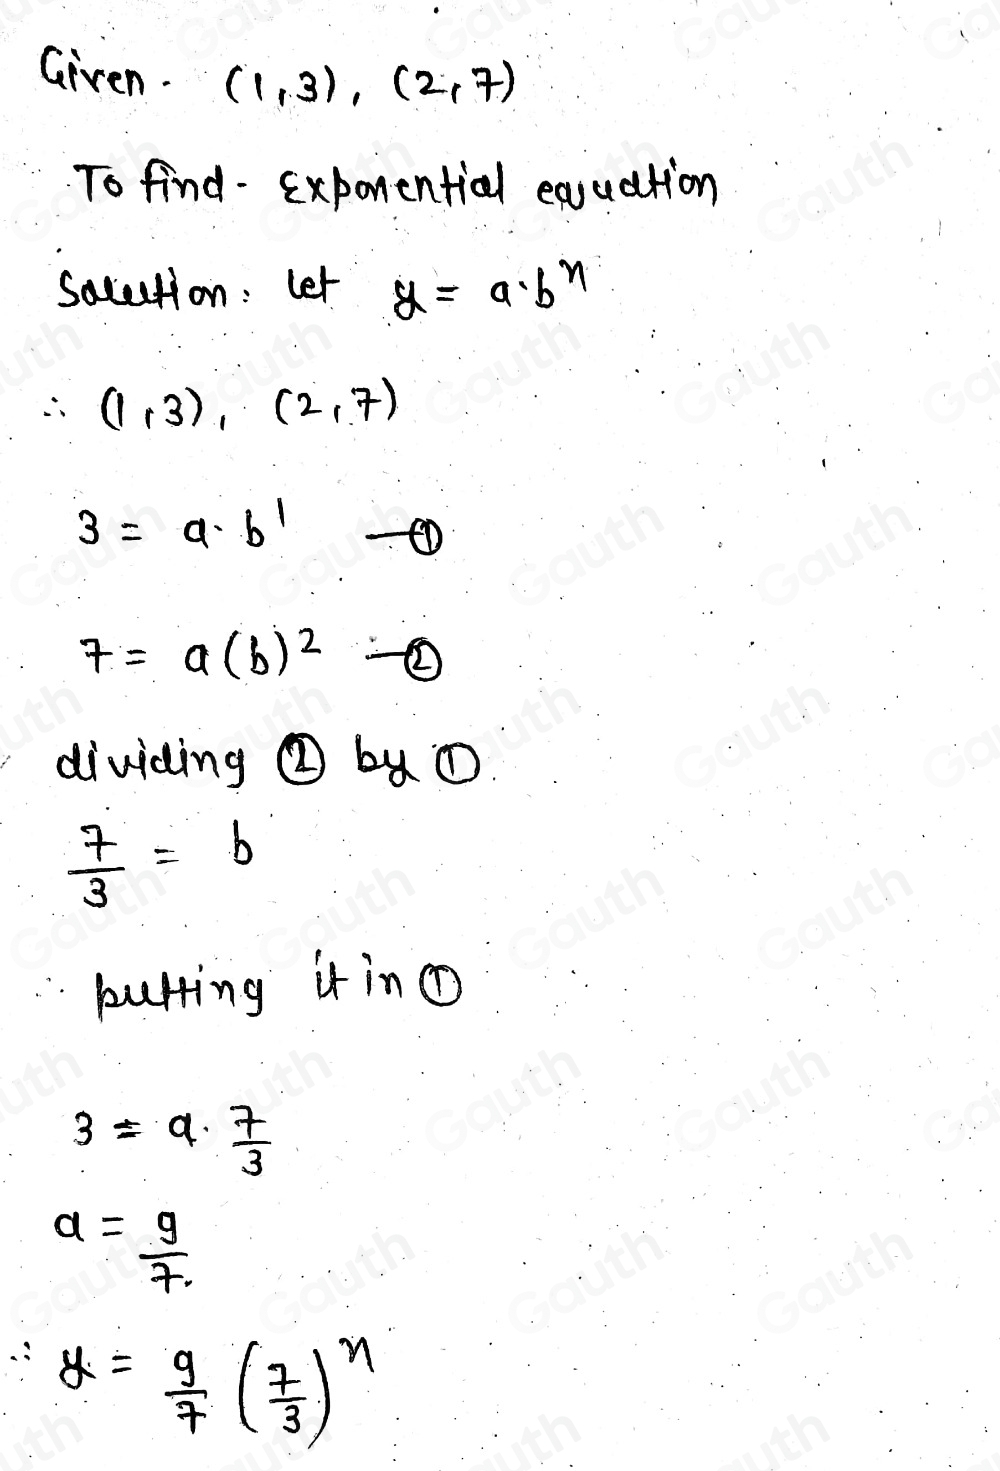 Given - (1,3), (2,7)
To find - Exponential equation
Solution: let y = a·b^x
∴ (1,3), (2,7)
3 = a·b^1 —①
7 = a(b)^2 —②
dividing ② by ①
7/3 = b
∴ putting it in ①
3 = a·7/3
a = 9/7.
∴ y = 9/7 (7/3)^x